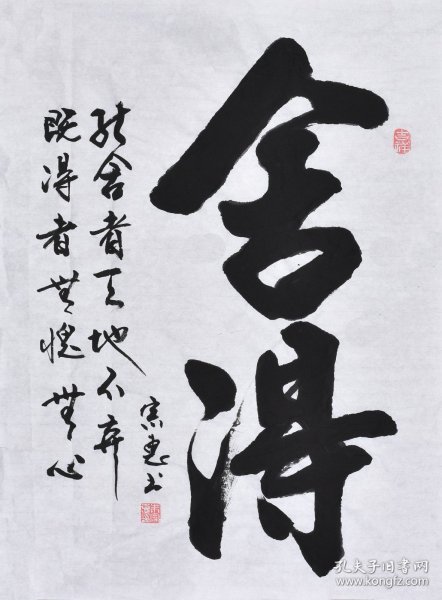 舍得
能舍者天地不弃
既得者無愧無心
宗惠书
吉祥
孔夫子旧书网
www.kongfz.com